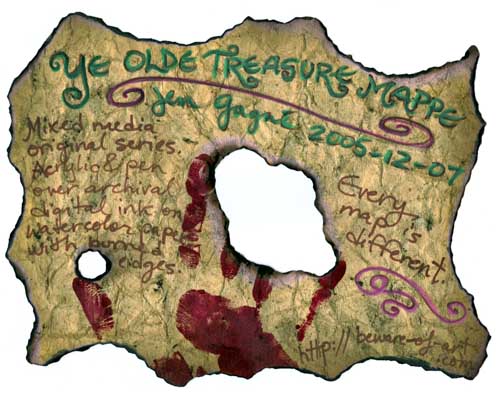 YE OLDE TREASURE MAPPE
Jen Gagné 2005-12-07
Mixed media
original series.
Acrylic & pen
over archival
digital ink on
watercolor paper
with burned
edges.
Every
map is
different.
http://beware-of-art
.com